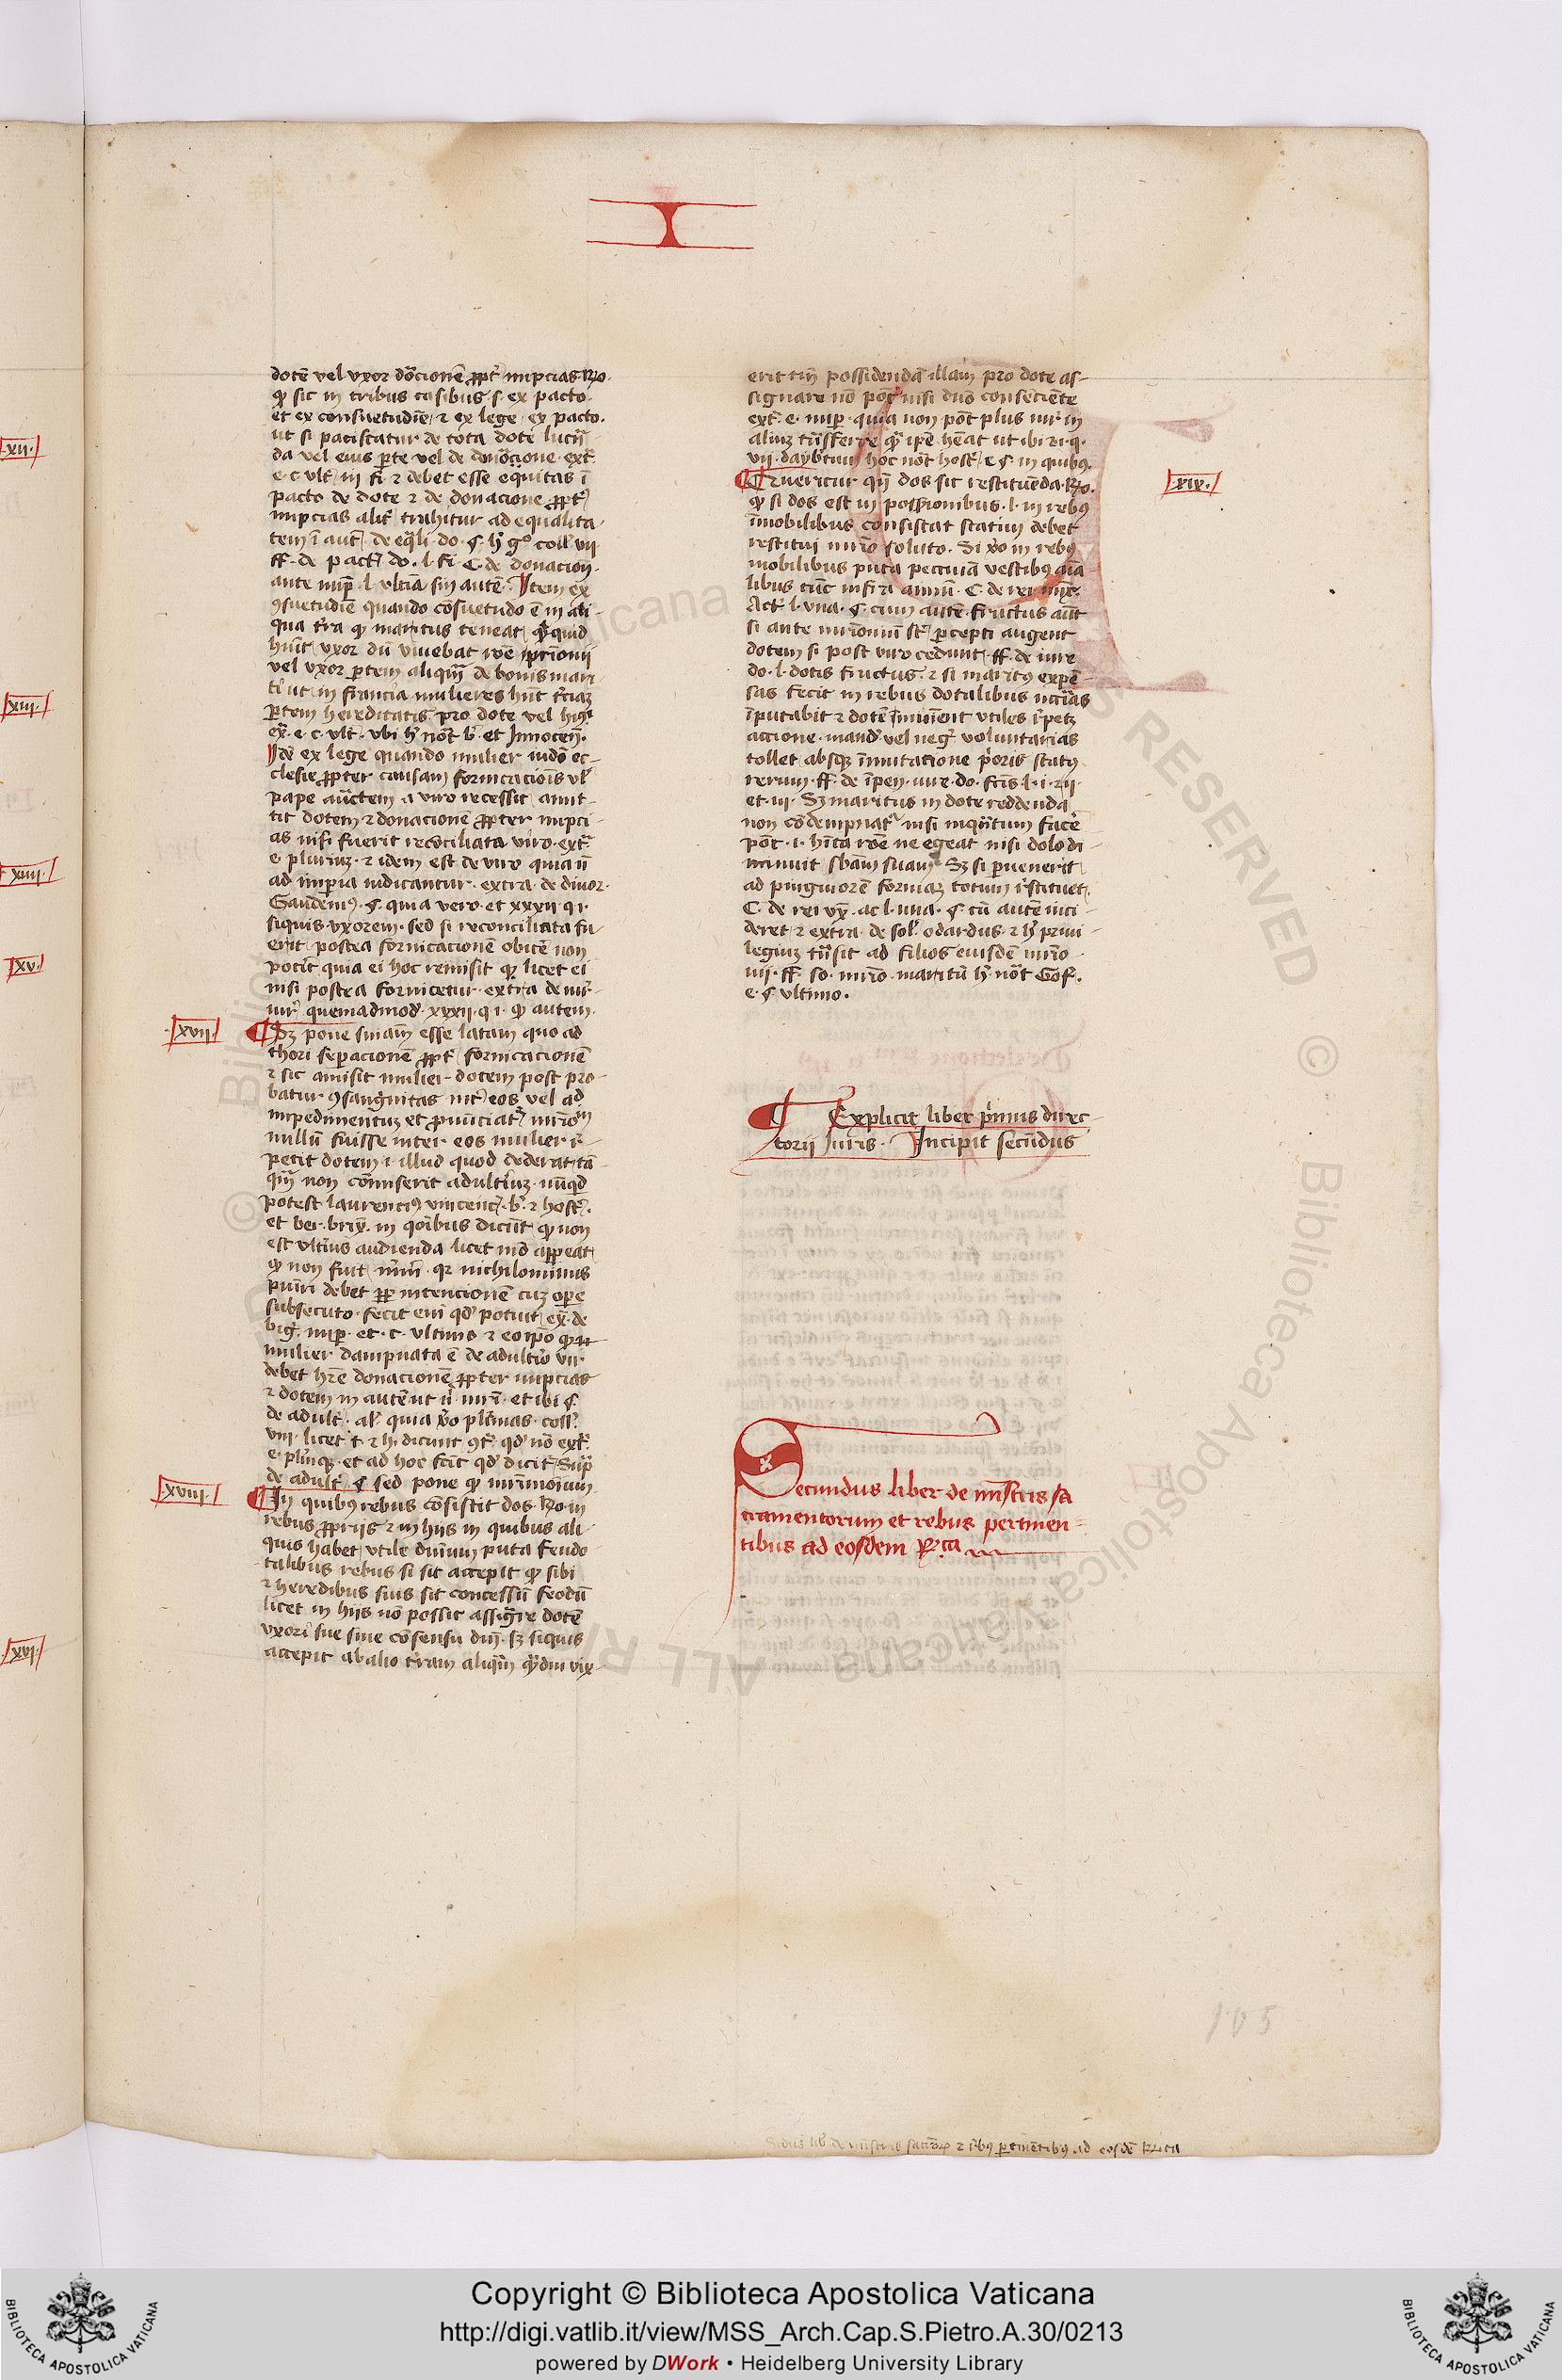 I
dotē vel vxor dōcionē ꝓpt' nupcias Ro.
ꝙ sic in tribus casibus s ex pacto.
et ex consuetudīe. ⁊ ex lege. ex pacto.
ut si paciscatur de tota dote lucrā
da vel eius parte vel de donacione. ext'
e. c. vlt. in fi. ⁊ debet esse equitas ī
pacto de dote ⁊ de donacione ꝓpt'
nupcias alit' trahitur ad equalita-
tem ī aut. de eqli. do. §. h' g° coll' vii
ff. de pact. do. l. fi C. de donacion.
ante nup. l. vltia sin autē. Item ex
ꝯsuetudīe quando cōsuetudo ē in ali-
qua tra ꝙ maritus teneat quidquid
huit vxor dū viuebat rōe mr̄ionii
vel vxor ptem aliqm de bonis mari-
ti ut in francia mulieres hnt t'ciaꝫ
ptem hereditatis pro dote vel
ex. e. c. vlt. vbi h' nōt b'. et Innocen.
Itē ex lege quando mulier iudō ec-
clesie ꝓpter causam fornicacionis vl'
pape auctem a viro recessit amit-
tit dotem ⁊ donacionē ꝓpter nupci-
as nisi fuerit recōciliata viro. ext'
e. pluriuꝫ. ⁊ idem est de viro quia n̄
ad imꝑia iudicantur. extra. de diuor.
Gaudemꝰ. §. quia vero. et xxxii q i.
siquis vxorem. sed si reconciliata fu-
erit postea fornicacionē obicē non
potit quia ei hoc remisit ꝙ licet ei
nisi postea fornicetur. extra de
iur' quemadmod. xxxii. q. i. ꝙ autem.
xvii.
Sꝫ pone sniam esse latam quo ad
thori sepacionē ꝓpt' fornicacionē
⁊ sic amisit mulier dotem post pro-
batur ꝯsanguitas int' eos vel ad
impedimentuꝫ et pronūciat' mr̄iom
nullū fuisse inter eos mulier r-
petit dotem i. illud quod dederat tā
qm non cōmiserit adult'iuꝫ. nūqd
potest laurenciꝰ vincenc. b'. ⁊ host'.
et ber. brix. in qōibus dicūt ꝙ non
est vlt'ius audienda licet mō appeat
ꝙ non fuit mr̄m. qꝛ nichilominus
puniri debet ꝓp intencionē cuꝫ ope
subsecuto. fecit eni qd' potuit ex. de
big. nup. et. c. vltimo ⁊ eo ipō ꝙ
mulier dampnata ē de adult'io vir
debet hr̄e donacionē ꝓpter nupcias
⁊ dotem in autē ut
de adult. al'. quia vo plimas. coll'.
viii. licet t. ⁊ h. dicunt ꝯt'. qd' nō ext'.
e. plūqꝫ. et ad hoc fcit qd' dicit sup
de adult. §. sed pone ꝙ mr̄imoium
xviii.
In quibꝰ rebus cōsistit dos. Ro. in
rebus ꝓpriis ⁊ in hiis in quibus ali-
quis habet vtile dnium puta feudo
talibus rebus si sit accepit ꝙ sibi
⁊ heredibus suis sit concessū feodū
licet in hiis nō possit assignre dotē
vxori sue sine cōsensu dni. sꝫ siquis
accepit ab alio tram aliqm qmdiu vix-
erit tm possidendā illam pro dote as-
signare nō pōt nisi dno consenciēte
ext. e. nup. quia non pōt plus iur' in
aliuꝫ tnsferre qm ipē hēat ut ibi xi. q.
vii. dayb'tum hoc nōt host. e. §. in quibꝰ.
xix.
Queritur qn dos sit restituēda. Ro.
ꝙ si dos est in possionibus. l. in rebꝰ
īmobilibus consistat statim debet
restitui mr̄io soluto. Si vo in rebꝰ
mobilibus puta peccuia vestibꝰ aīa
libus tūc infra annū. C. de rei vxor.
Act. l. vna. §. cum autē fructus aūt
si ante mr̄ionium st' percepti augent
dotem si post viro cedunt. ff. de iure
do. l. dotis fructus. ⁊ si maritꝰ expē-
sas fecit in rebus dotalibus nccias
īputabit ⁊ dotē īminuent vtiles r̄petꝫ
actione. mand' vel neg' voluntarias
tollet absqꝫ īmutacione pioris statꝰ
rerum. ff. de īpen. iure do. fctis. l. i. ⁊ ii
et. iii. Sꝫ maritus in dote reddenda
non cōdempnat' nisi inqntum facē
pōt. i. hita rōe ne egeat. nisi dolo di-
minuit sbam suam. Sꝫ si peruenerit
ad pinguiorē fortunaꝫ totum r̄stituet.
C. de rei vx. ac l. vna. §. cū autē inci-
deret ⁊ extra. de sol. odardus. ⁊ h' priui-
legiuꝫ tn̄sit ad filios eiusdē mr̄io
nii. ff. so. mr̄io. maritū h' nōt Gof.
e. § vltimo.
Explicit liber pimus direc-
torii Juris. Incipit secūdus
Secundus liber de mīstris sa
cramentorum et rebus pertinen-
tibus ad eosdem Rca
105
Scdus lib de ministris sacroꝝ ⁊ rebꝰ ptinētibꝰ ad eosdē Rca
xii.
xiii.
xiiii.
xv.
xvi.
Copyright © Biblioteca Apostolica Vaticana
http://digi.vatlib.it/view/MSS_Arch.Cap.S.Pietro.A.30/0213
powered by DWork • Heidelberg University Library
BIBLIOTECA APOSTOLICA VATICANA
BIBLIOTECA APOSTOLICA VATICANA
© Biblioteca Apostolica Vaticana ALL RIGHTS RESERVED